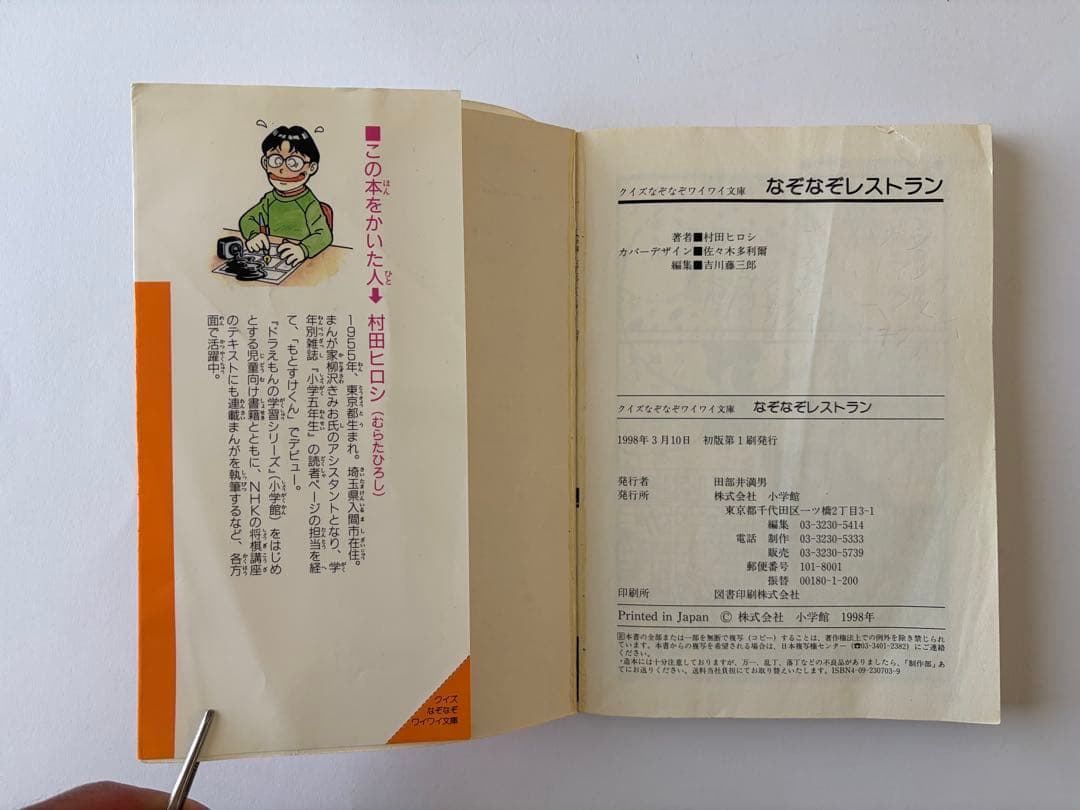 ■この本をかいた人➡村田ヒロシ（むらたひろし）
1955年、東京都生まれ。埼玉県入間市在住。
まんが家柳沢きみお氏のアシスタントとなり、学
年別雑誌『小学五年生』の読者ページの担当を経
て、「もとすけくん」でデビュー。
『ドラえもんの学習シリーズ』（小学館）をはじめ
とする児童向け書籍とともに、NHKの将棋講座
のテキストにも連載まんがを執筆するなど、各方
面で活躍中。
クイズ
なぞなぞ
ワイワイ文庫
クイズなぞなぞワイワイ文庫 なぞなぞレストラン
著者■村田ヒロシ
カバーデザイン■佐々木多利爾
編集■吉川藤三郎
クイズなぞなぞワイワイ文庫 なぞなぞレストラン
1998年3月10日 初版第1刷発行
発行者 田部井満男
発行所 株式会社 小学館
東京都千代田区一ツ橋2丁目3-1
編集 03-3230-5414
電話 制作 03-3230-5333
販売 03-3230-5739
郵便番号 101-8001
振替 00180-1-200
印刷所 図書印刷株式会社
Printed in Japan Ⓒ 株式会社 小学館 1998年
Ⓡ本書の全部または一部を無断で複写（コピー）することは、著作権法上での例外を除き禁じられ
ています。本書からの複写を希望される場合は、日本複写権センター（☎03-3401-2382）にご連絡
ください。
・造本には十分注意しておりますが、万一、乱丁、落丁などの不良品がありましたら、「制作部」あ
てにお送りください。送料当社負担にてお取り替えいたします。ISBN4-09-230703-9